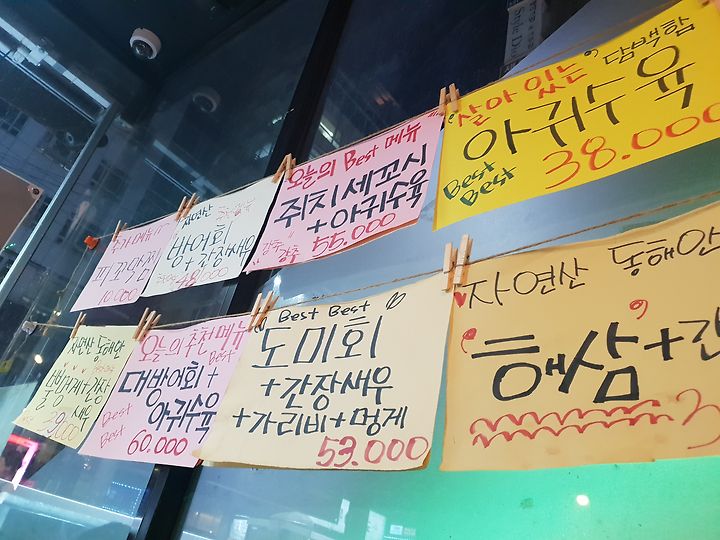 추가메뉴
피꼬막찜
10.000
자연산
방어회
+간장새우
48.000
오늘의 Best 메뉴
쥐치세꼬시
+아귀수육
강추
강추
55.000
"살아 있는" 담백함
아귀수육
Best
Best
38.000
자연산 동해안
새우
39.000
오늘의 추천메뉴
Best
대방어회+
아귀수육
Best
Best
60.000
"Best Best"
도미회
+간장새우
+가리비+멍게
53.000
자연산 동해안
해삼+간